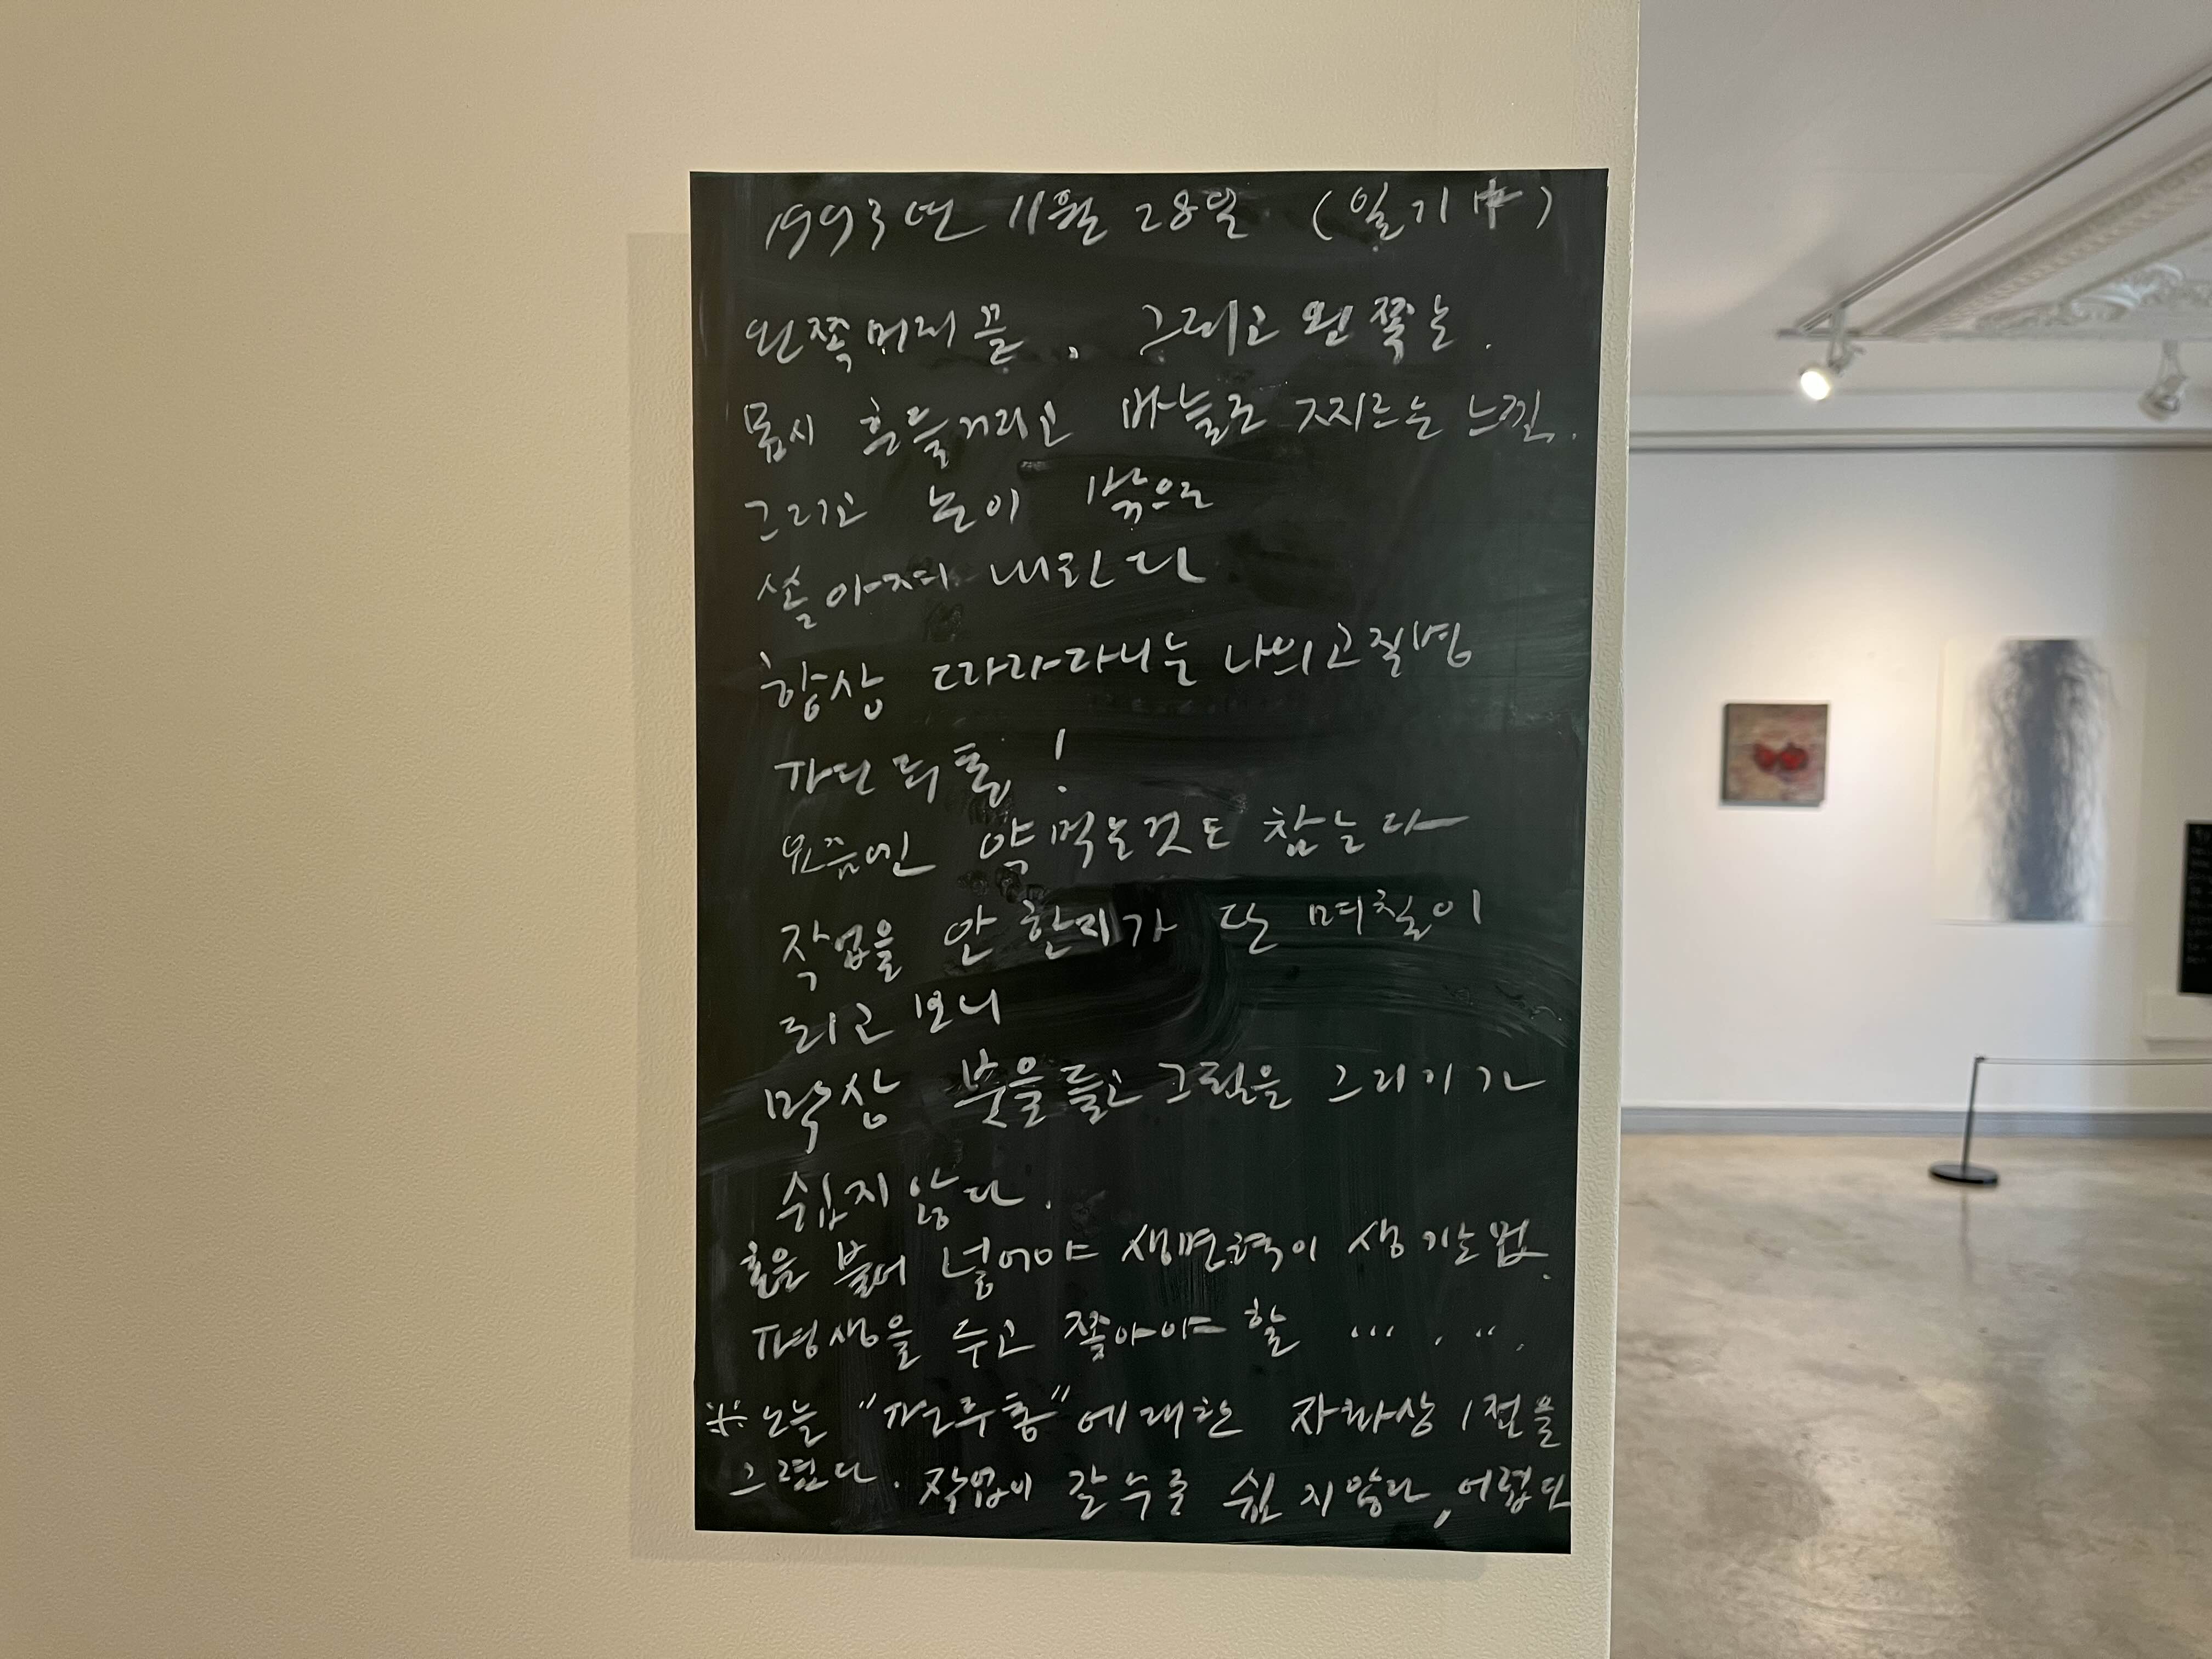 1993년 11월 28일 (일기中)
왼쪽머리끝, 그리고 왼쪽눈.
몹시 흔들거리고 바늘로 찌르는 느낌.
그리고 눈이 밖으로
쏟아져 내린다
항상 따라다니는 나의 고질병
판뒤훔!
요즘엔 약 먹는것도 참는다
작업을 안 한지가 단 며칠이
되고 보니
막상 붓을 들고 그림을 그리기가
쉽지 않다.
혼을 불어 넣어야 생명력이 생기는 법.
평생을 두고 쫓아야 할 ... . ...
※ 오늘 "판뒤훔"에 대한 자화상 1점을
그렸다. 작업이 갈수록 쉽지않다, 어렵다